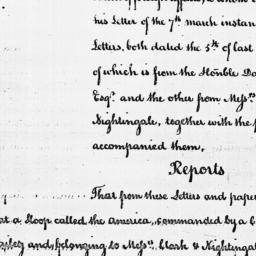 his Letter of the 7th march instan
Letters, both dated the 5th of last
of which is from the Honble Da
Esqr. and the other from Messrs.
Nightingale, together with the p
accompanied them,
Reports
That from these Letters and paper
at a Sloop called the america, commanded by a C
and belonging to Messrs. Clark & Nightingal